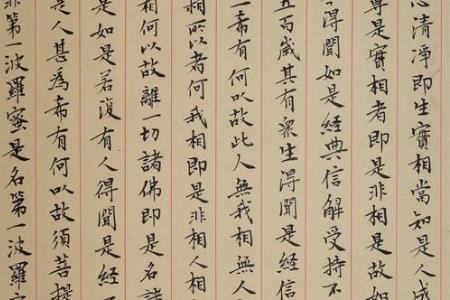 心清淨即生實相當知是人成
尊是實相者即是非相是故如
今得聞如是經典信解受持不
五百歲其有眾生得聞是經信
一希有何以故此人無我相無人
相所以者何我相即是非相人相
相何以故離一切諸佛即是名諸
是如是若復有人得聞是經不
是人甚為希有何以故須菩提
非第一波羅蜜是名第一波羅